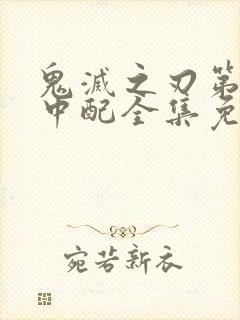 鬼滅之刃第
中配全集免
宛若新衣